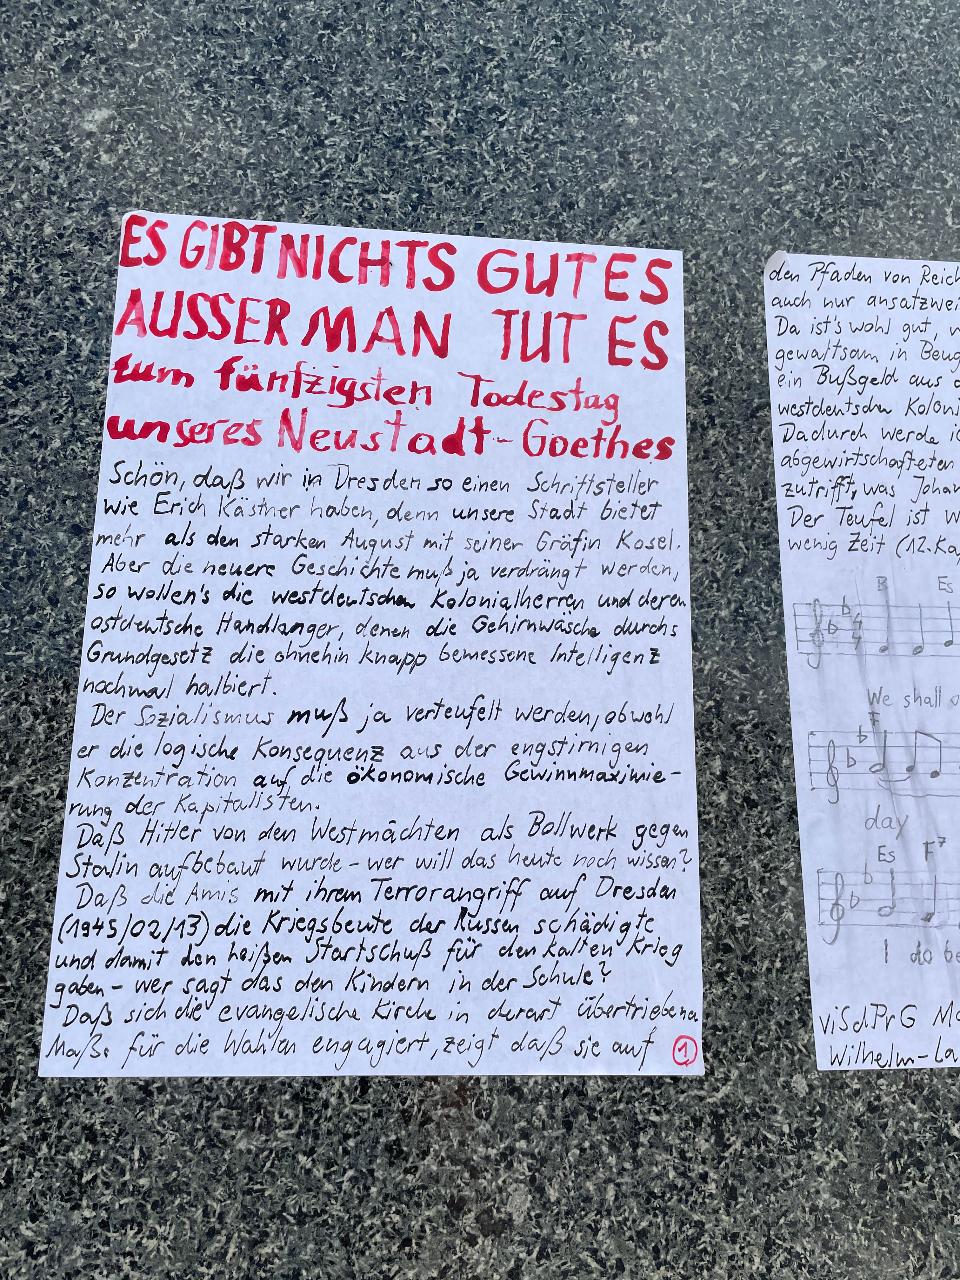 ES GIBT NICHTS GUTES
AUSSER MAN TUT ES
zum fünfzigsten Todestag
unseres Neustadt-Goethes
Schön, daß wir in Dresden so einen Schriftsteller
wie Erich Kästner haben, denn unsere Stadt bietet
mehr als den starken August mit seiner Gräfin Kosel.
Aber die neuere Geschichte muß ja verdrängt werden,
so wollen's die westdeutschen Kolonialherren und deren
ostdeutsche Handlanger, denen die Gehirnwäsche durchs
Grundgesetz die ohnehin knapp bemessene Intelligenz
nochmal halbiert.
Der Sozialismus muß ja verteufelt werden, obwohl
er die logische Konsequenz aus der engstirnigen
Konzentration auf die ökonomische Gewinnmaximie-
rung der Kapitalisten.
Daß Hitler von den Westmächten als Bollwerk gegen
Stalin aufbebaut wurde - wer will das heute noch wissen?
Daß die Amis mit ihrem Terrorangriff auf Dresden
(1945/02/13) die Kriegsbeute der Russen schädigte
und damit den heißen Startschuß für den kalten Krieg
gaben - wer sagt das den Kindern in der Schule?
Daß sich die evangelische Kirche in derart übertriebene
Maße für die Wahlen engagiert, zeigt daß sie auf 1
den Pfaden von Reich
auch nur ansatzwei
Da ist's wohl gut, w
gewaltsam in Beug
ein Bußgeld aus d
westdeutschen Koloni
Dadurch werde ic
abgewirtschafteten
zutrifft, was Johan
Der Teufel ist w
wenig Zeit (12.Ka
B Es
We shall o
F
day
Es F7
I do be
ViSdPrG Ma
Wilhelm-La